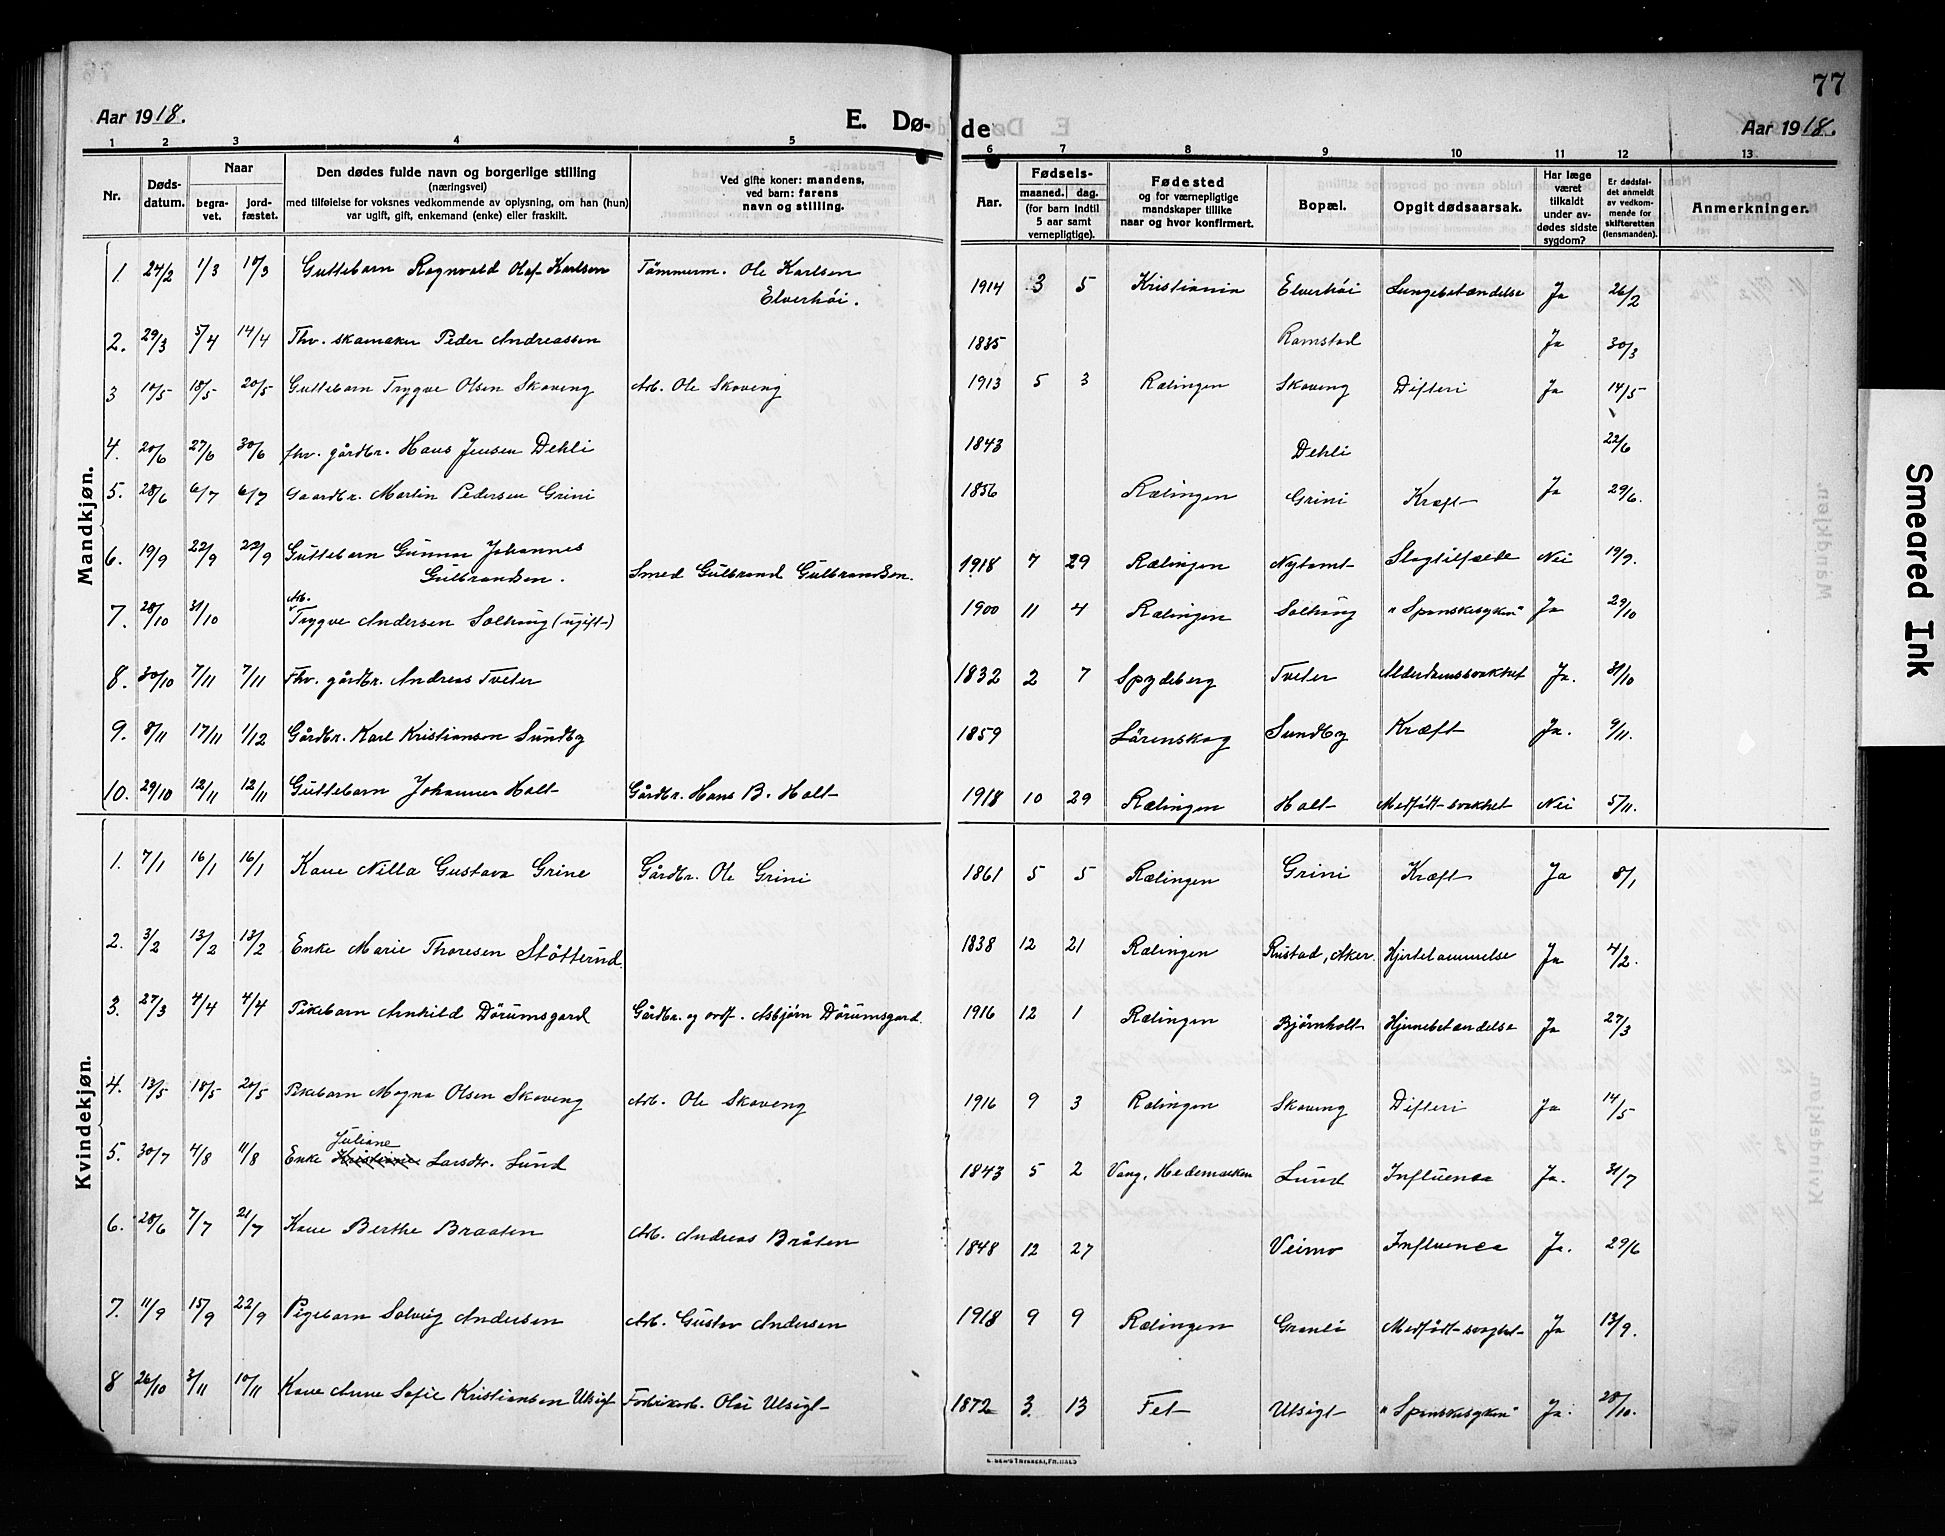 77
Aar 1918.
E. Dø-
de
Aar 1918.
1 2 3 4 5 6 7 8 9 10 11 12 13
Nr.
Døds-
datum.
Naar
begra-
vet.
jord-
fæstet.
Den dødes fulde navn og borgerlige stilling
(næringsvei)
med tilføielse for voksnes vedkommende av oplysning, om han (hun)
var ugift, gift, enkemand (enke) eller fraskilt.
Ved gifte koner: mandens,
ved barn: farens
navn og stilling.
Aar.
Fødsels-
maaned. dag.
(for barn indtil
5 aar samt
vernepligtige).
Fødested
og for værnepligtige
mandskaper tillike
naar og hvor konfirmert.
Bopæl.
Opgit dødsaarsak.
Har læge
været
tilkaldt
under av-
dødes sidste
sygdom?
Er dødsfal-
det anmeldt
av vedkom-
mende for
skifteretten
(lensmanden).
Anmerkninger.
Mandkjøn.
1. 24/2 1/3 10/3 Guttebarn Ragnvald Olaf Karlsen Tömmerm. Ole Karlsen
Elverhöi.
1914 3 5 Kristiania Elverhöi Lungebetændelse Ja 26/2
2. 29/3 5/4 14/4 Fhv. skomaker Peder Andreassen 1835 Ramstad Ja 30/3
3 10/5 18/5 20/5 Guttebarn Trygve Olsen Skoveng Arb. Ole Skoveng 1913 5 3 Rælingen Skoveng Difteri Ja 14/5
4. 20/6 27/6 30/6 fhv. gårdbr. Hans Jensen Dehli 1843 Dehli 22/6
5. 28/6 6/7 6/7 Gaardbr. Martin Pedersen Grini 1856 Rælingen Grini Kræft Ja 29/6.
6. 19/9 22/9 22/9 Guttebarn Gunnar Johannes
Gulbrandsen. Smed Gulbrand Gulbrandsen. 1918 7 29 Rælingen Nytomt Slagtilfælde Nei 19/9.
7. 28/10 31/10 Arb.
Trygve Andersen Solhaug (ugift) 1900 11 4 Rælingen Solhaug "Spanskesyken" Ja 29/10
8. 30/10 7/11 7/11 Fhv. gårdbr. Andreas Tveter 1832 2 7 Spydeberg Tveter Alderdomssvakhet Ja. 31/10
9. 8/11 17/11 1/12 Gårdbr. Karl Kristiansen Sundby 1859 Lörenskog Sundby Kræft Ja. 9/11.
10. 29/10 12/11 12/11 Guttebarn Johannes Holt Gårdbr. Hans B. Holt 1918 10 29 Rælingen Holt Medfödt svakhet Nei 5/11.
Kvindekjøn.
1. 7/1 16/1 16/1 Kone Nilla Gustava Grine Gårdbr. Ole Grini 1861 5 5 Rælingen Grini Kræft Ja 8/1
2. 3/2 13/2 13/2 Enke Marie Thoresen Stötterud. 1838 12 21 Rælingen Rustad, Aker. Hjertelammelse Ja 4/2.
3. 27/3 4/4 4/4 Pikebarn Arnhild Dörumsgard Gårdbr. og ordf. Asbjørn Dörumsgard. 1916 12 1 Rælingen Bjørnholt Hjernebetændelse Ja 27/3
4. 13/5 18/5 20/5 Pikebarn Magna Olsen Skoveng Arb. Ole Skoveng 1916 9 3 Rælingen Skoveng Difteri Ja 14/5
Juliane
5. 30/7 4/8 11/8 Enke Kristiane Larsdtr. Lund 1843 5 2 Vang, Hedemarken Lund Influensa Ja. 31/7
6. 28/6 7/7 21/7 Kone Berthe Braaten Arb. Andreas Bråten 1848 12 27 Veimo Influensa Ja. 29/6
7. 11/9 15/9 22/9 Pigebarn Solveig Andersen Arb. Gustav Andersen 1918 9 9 Rælingen Granli Medfödt svaghet Ja 13/9.
8 26/10 3/11 10/11 Kone Anne Sofie Kristiansen Utsigt Fabrikarb. Olai Utsigt 1872 3. 13 Fet Utsigt "Spanskesyken" Ja. 28/10.
Smeared Ink